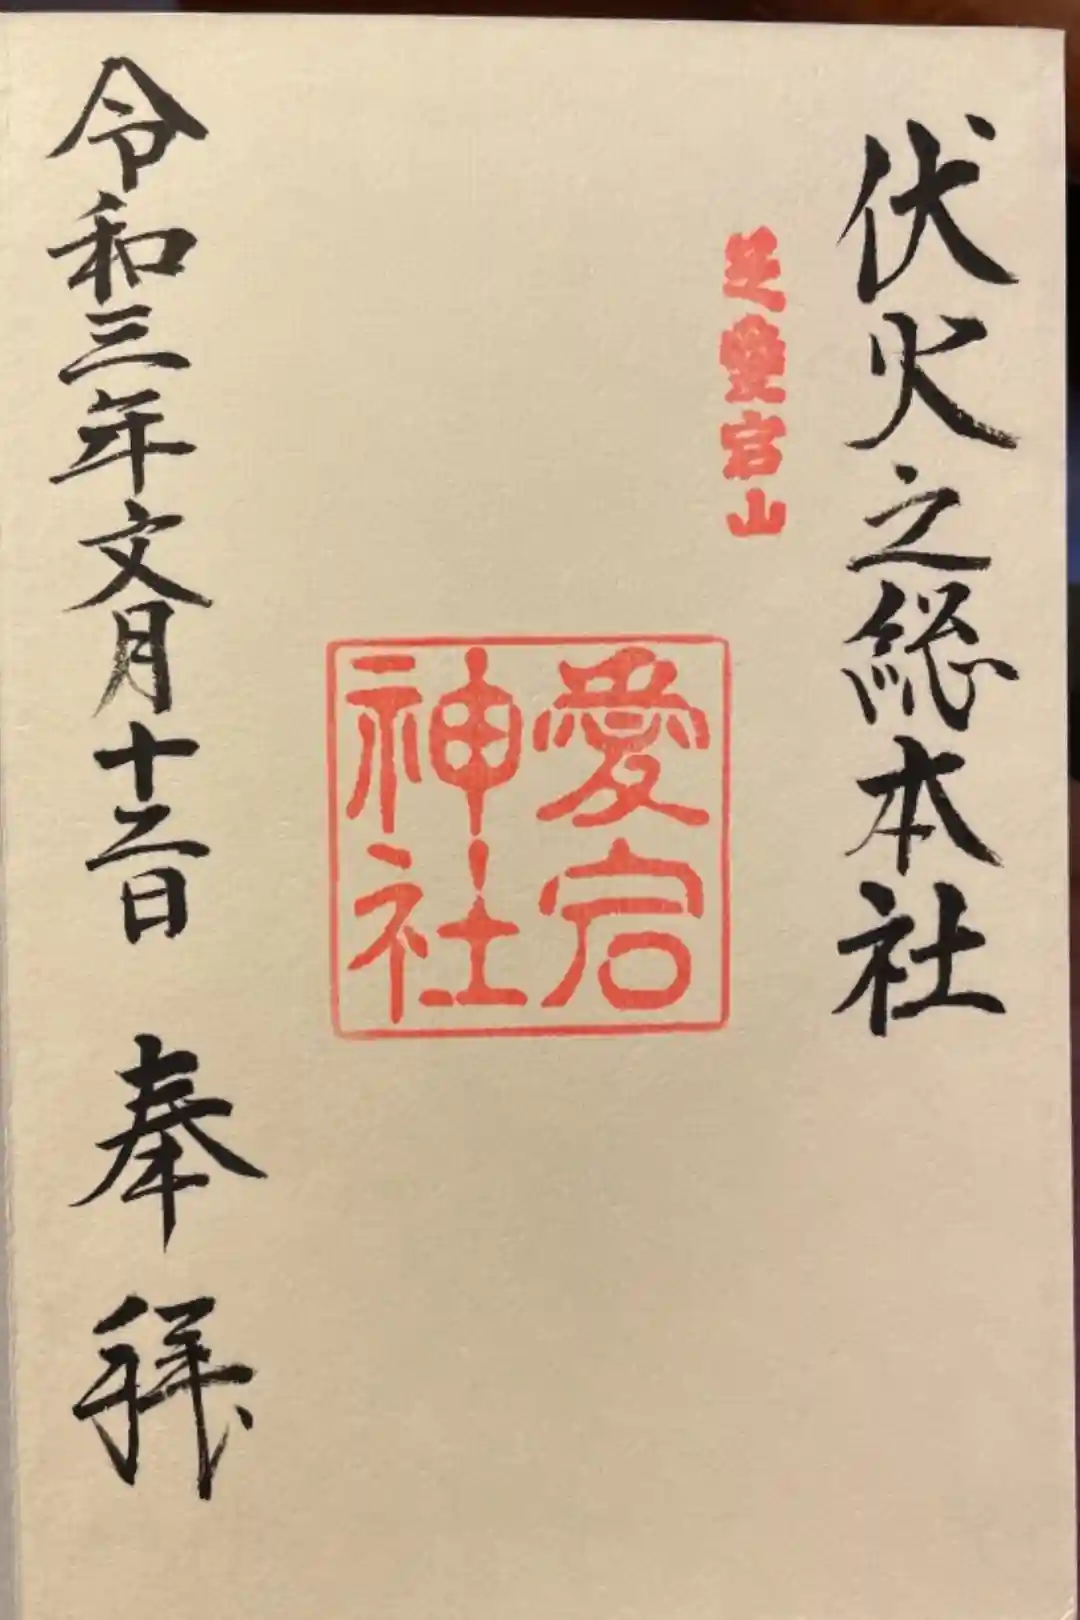 伏火之総本社
芝愛宕山
愛宕
神社
令和三年文月十二日 奉拝